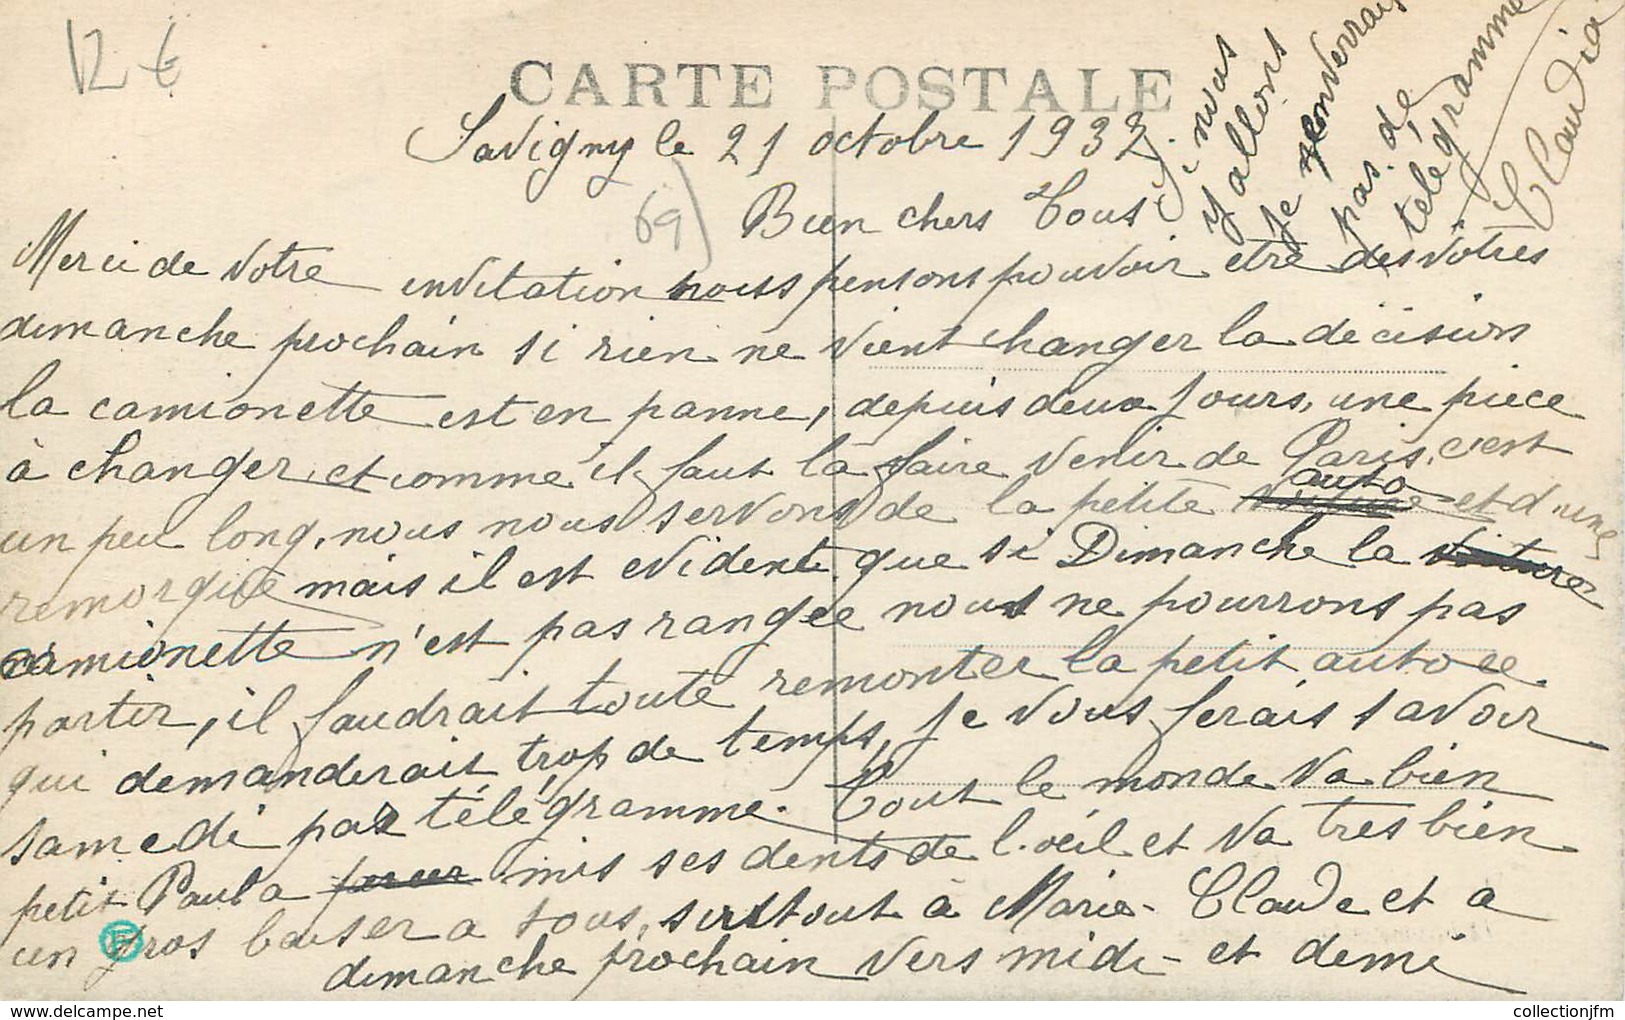 12 €
CARTE POSTALE
Savigny le 21 octobre 1933
69)
Bien chers Tous
Merci de votre invitation nous pensons pouvoir etre des votres
dimanche prochain si rien ne vient changer la décision
la camionette est en panne, depuis deux jours, une piece
à changer et comme il faut la faire venir de Paris, c'est
un peu long, nous nous servons de la petite auto et d'une
remorque mais il est evident que si Dimanche la voiture
camionette n'est pas rangée nous ne pourrons pas
partir, il faudrait toute remonter la petit auto ce
qui demanderait trop de temps, je vous ferais savoir
samedi par télégramme. Tout le monde va bien
petit Paul a mis ses dents de l'oeil et va tres bien
un gros baiser a tous, surtout à Marie-Claude et a
dimanche prochain vers midi et demi
Si nous
y allons
je
pas de
télégramme
Claudia
collectionjfm